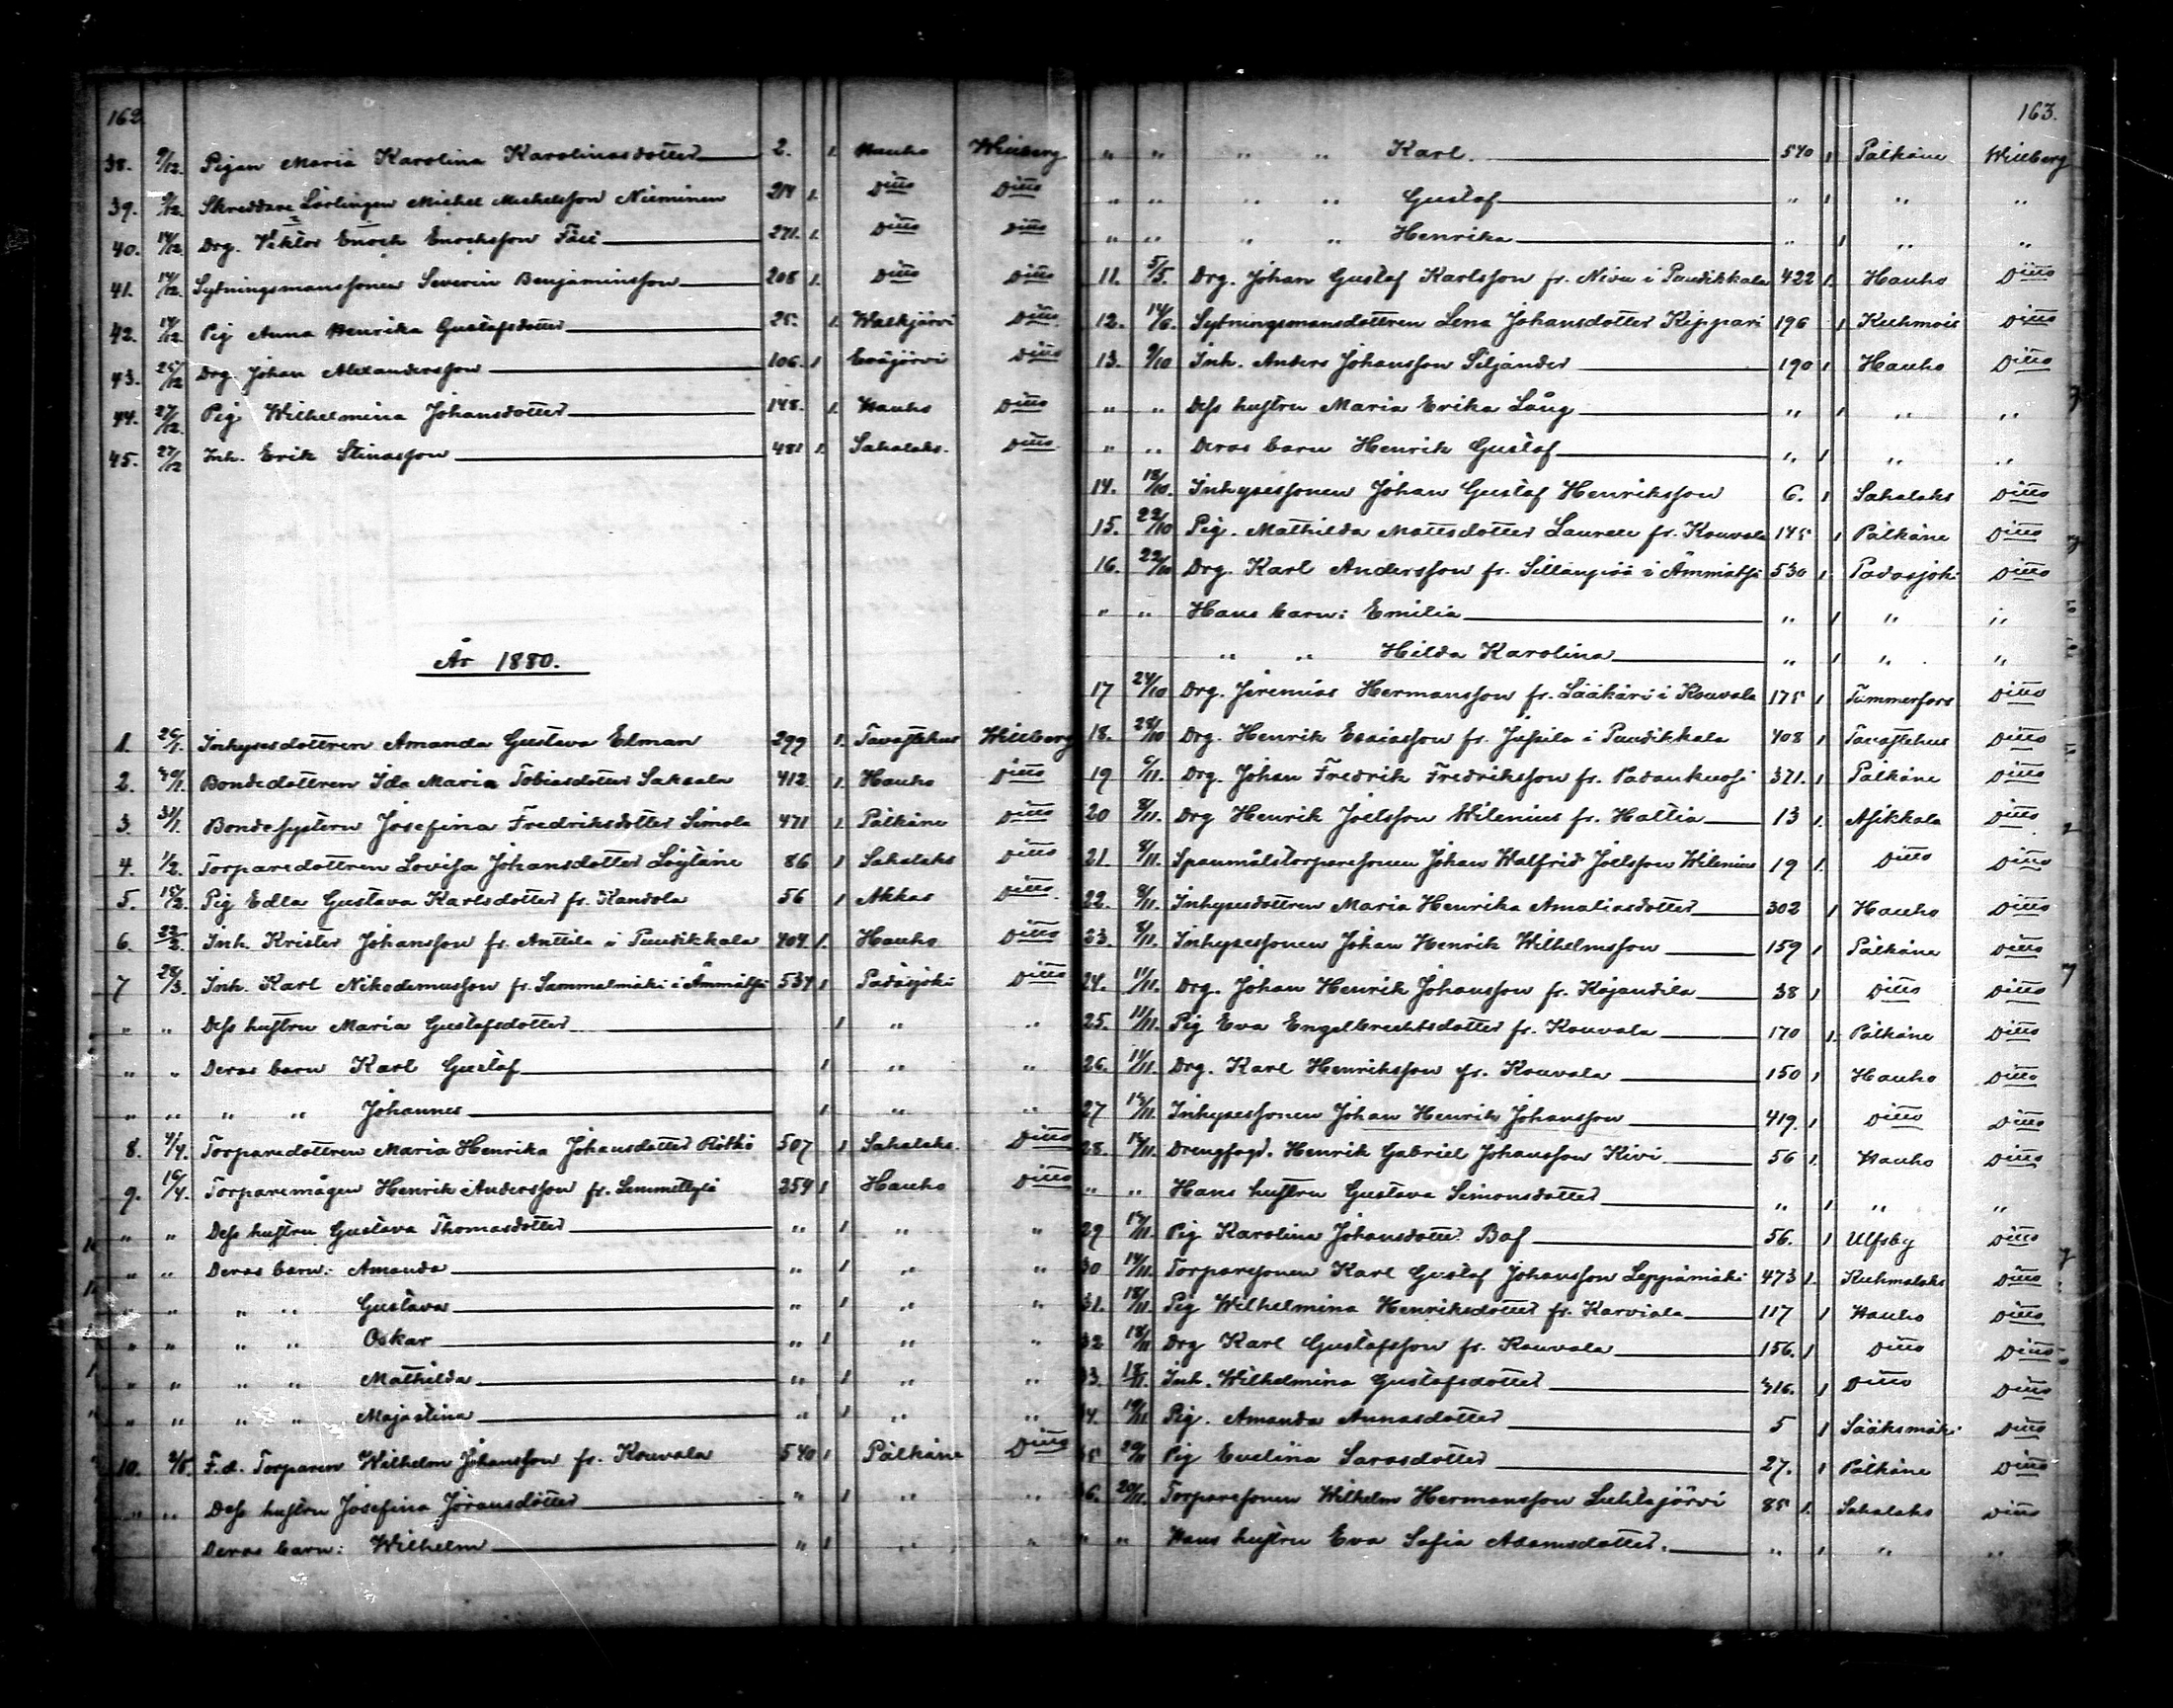 162.
38. 9/12. Pigan Maria Karolina Karolinasdotter 2. 1. Hauho Willberg
39. 9/12. Skreddare Lärlingen Michel Michelsson Nieminen 214 1. Ditto Ditto
40. 14/12. Drg. Viktor Enock Enocksson 271. 1. Ditto Ditto
41. 14/12. Sytningsmanssonen Severin Benjaminsson 208 1. Ditto Ditto
42. 14/12. Pig Anna Henrika Gustafsdotter 25. 1. Walkjärvi Ditto
43. 25/12 Drg Johan Alexandersson 106. 1 Eräjärvi Ditto
44. 27/12. Pig Wilhelmina Johansdotter 148. 1. Hauho Ditto
45. 27/12 Inh. Erik Stinasson 481 1. Sahalaks. Ditto
År 1880.
1. 26/1. Inhysesdottren Amanda Gustava Edman 299 1. Tavastehus Willberg
2. 29/1. Bondedottren Ida Maria Tobiasdotter Saksala 412 1. Hauho Ditto
3. 31/1. Bondesystern Josefina Fredriksdotter Simola 471 1. Pälkäne Ditto
4. 1/2. Torparedottren Lovisa Johansdotter Löytäne 86 1 Sahalaks Ditto
5. 18/2. Pig Edla Gustava Karlsdotter fr. Kandola 56 1 Akkas Ditto
6. 22/2. Inh. Krister Johansson fr. Anttila i Puudikkala 404. 1. Hauho Ditto
7 28/3. Inh. Karl Nikodemusson fr. Sammalmäki i Ämmätsä 534 1 Padasjoki Ditto
" " Dess hustru Maria Gustafsdotter 1 " "
" " Deras barn Karl Gustaf 1 " "
" " " " Johannes 1 " "
8. 4/4. Torparedottren Maria Henrika Johansdotter Rötkö 507 1 Sahalaks. Ditto
9. 16/4. Torparemågen Henrik Andersson fr. Lemmettylä 259 1 Hauho Ditto
" " Dess hustru Gustava Thomasdotter " 1 " "
" " Deras barn: Amanda " 1 " "
" " " " Gustava " 1 " "
" " " " Oskar " 1 " "
" " " " Mathilda " 1 " "
" " " " Majastina " 1 " "
10. F.d. Torparen Wilhelm Johansson fr. Kouvala 540 1 Pälkäne Ditto
" " Dess hustru Josefina Göransdotter " 1 " "
Deras barn: Wilhelm " 1 " "
163.
" " " " Karl 540 1 Pälkäne Willberg
" " " " Gustaf " 1 " "
" " " " Henrika " 1 " "
11. 5/5. Drg. Johan Gustaf Karlsson fr. Nivu i Puudikkala 422 1. Hauho Ditto
12. 14/6. Sytningsmansdottren Lena Johansdotter Kippari 196 1 Kuhmois Ditto
13. 9/10 Inh. Anders Johansson Siljander 190 1 Hauho Ditto
" " Dess hustru Maria Erika Lång " 1 " "
" " Deras barn Henrik Gustaf " 1 " "
14. 18/10. Inhysessonen Johan Gustaf Henriksson 6. 1 Sahalaks Ditto
15. 22/10 Pig. Mathilda Mattsdotter Laurell fr. Kouvala 145 1 Pälkäne Ditto
16. 22/10 Drg. Karl Andersson fr. Sillanpää i Ämmätsä 530 1 Padasjoki Ditto
" " Hans barn: Emilia " 1 " "
" " Hilda Karolina " 1 " "
17 24/10 Drg. Jeremias Hermansson fr. Lääkäri i Kouvala 175 1 Tammerfors Ditto
18. 28/10 Drg. Henrik Esaiasson fr. Jussila i Puudikkala 408 1 Tavastehus Ditto
19 6/11. Drg. Johan Fredrik Fredriksson fr. 371. 1 Pälkäne Ditto
20 8/11. Drg Henrik Joelsson Wilenius fr. Hattia 13 1. Asikkala Ditto
21. 8/11. Spanmålstorparesonen Johan Walfrid Joelsson Wilenius 19 1. Ditto Ditto
22. 8/11. Inhysesdottren Maria Henrika Amaliasdotter 302 1 Hauho Ditto
23. 8/11. Inhysessonen Johan Henrik Wilhelmsson 159 1 Pälkäne Ditto
24. 11/11. Drg. Johan Henrik Johansson fr. Kajandila 38 1 Ditto Ditto
25. 11/11. Pig Eva Engelbrechtsdotter fr. Kouvala 170 1. Pälkäne Ditto
26. 11/11. Drg. Karl Henriksson fr. Kouvala 150 1 Hauho Ditto
27 15/11. Inhysessonen Johan Henrik Johansson 419. 1 Ditto Ditto
28. 15/11. Drengfogd. Henrik Gabriel Johansson Kivi 56 1. Hauho Ditto
" " Hans hustru Gustava Simonsdotter " 1. " "
29 15/11. Pig Karolina Johansdotter Bof 56. 1 Ulfsby Ditto
30 14/11. Torparesonen Karl Gustaf Johansson Leppämäki 473 1. Kuhmalaks Ditto
31. 18/11. Pig Wilhelmina Henriksdotter fr. Karviala 117 1 Hauho Ditto
32 18/11 Drg Karl Gustafsson fr. Kouvala 156. 1 Ditto Ditto
3. 18/11. Inh. Wilhelmina Gustafsdotter 316. 1 Ditto Ditto
4. 19/11 Pig. Amanda Annasdotter 5 1 Sääksmäki Ditto
5 20/11 Pig Evelina Sarasdotter 27. 1 Pälkäne Ditto
6. 20/11. Torparesonen Wilhelm Hermansson Luhtajärvi 85 1. Sahalaks Ditto
" " Hans hustru Eva Sofia Adamsdotter. " 1 " "